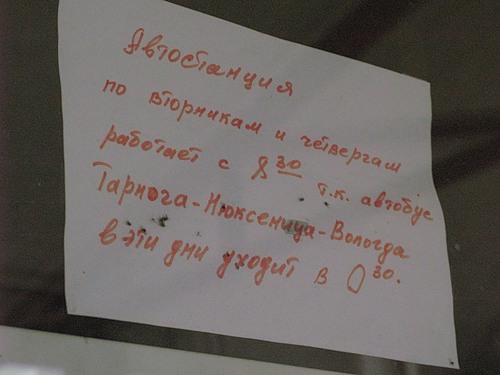 Автостанция
по вторникам и четвергам
работает с 8 30 т.к. автобус
Тарнога-Нюксеница-Вологда
в эти дни уходит в 0 30.